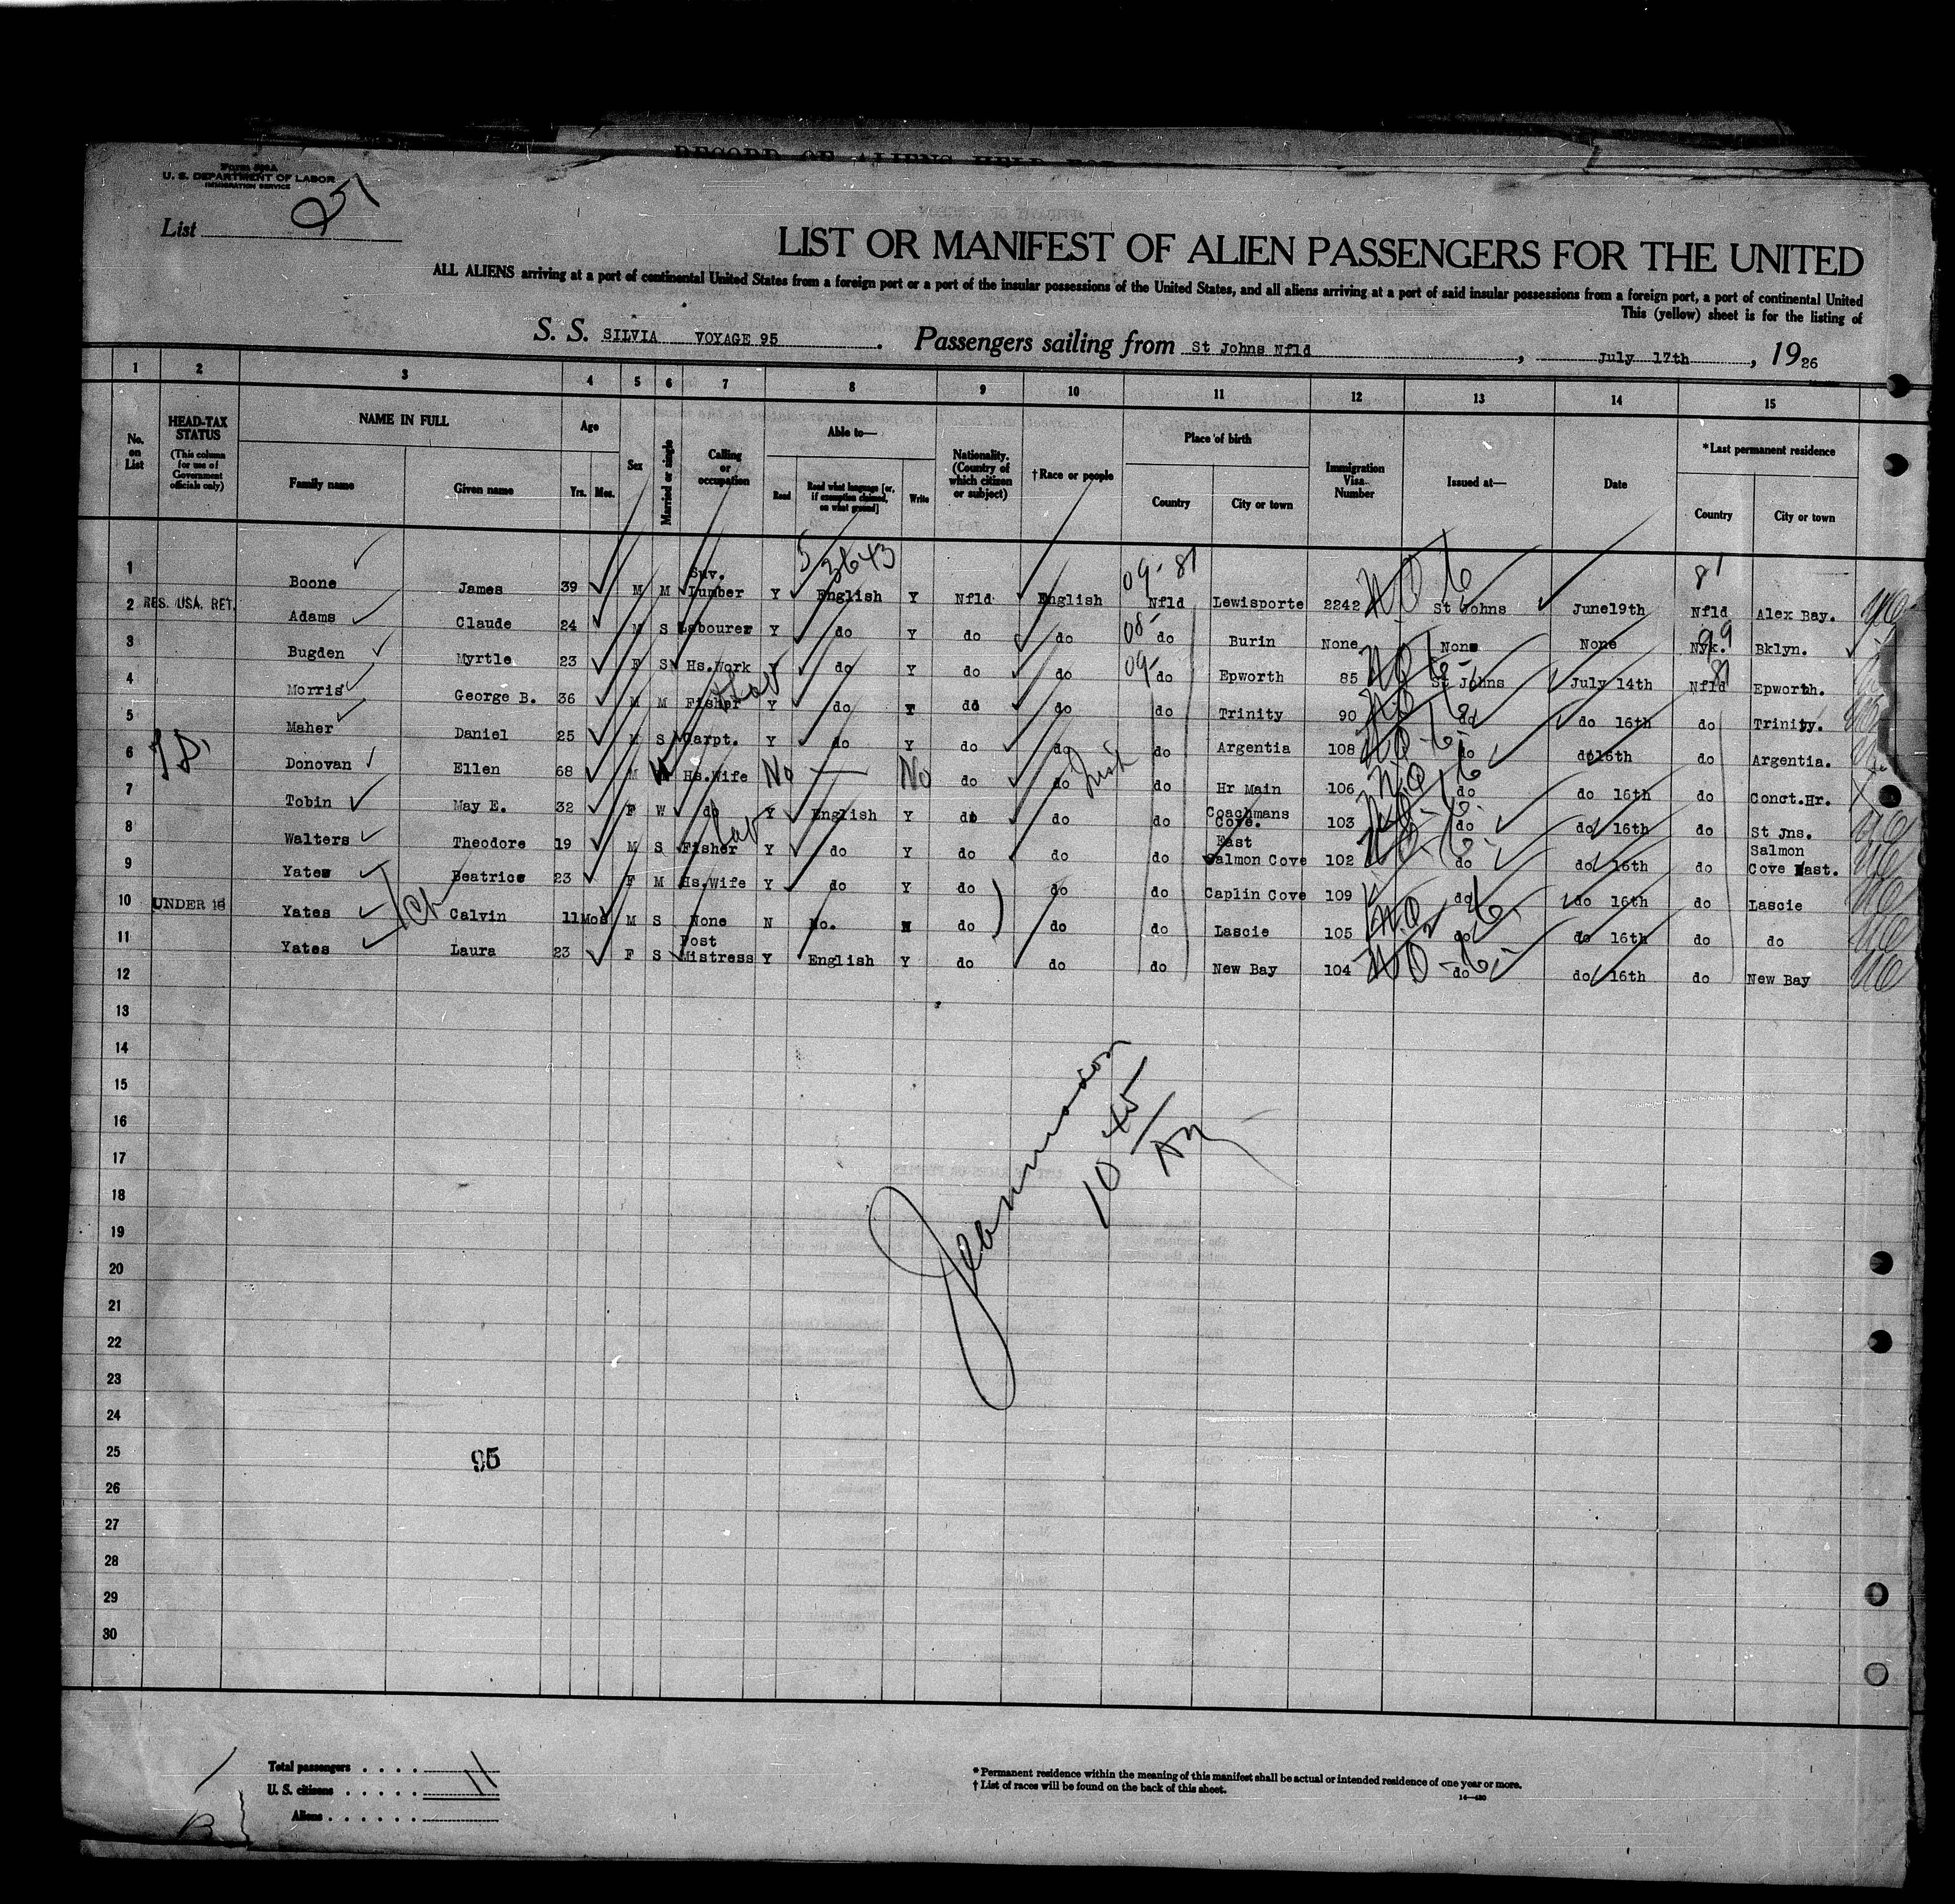 Form 500A
U. S. DEPARTMENT OF LABOR
IMMIGRATION SERVICE
List 251
LIST OR MANIFEST OF ALIEN PASSENGERS FOR THE UNITED
ALL ALIENS arriving at a port of continental United States from a foreign port or a port of the insular possessions of the United States, and all aliens arriving at a port of said insular possessions from a foreign port, a port of continental United
This (yellow) sheet is for the listing of
S. S. SILVIA VOYAGE 95 . Passengers sailing from St Johns Nfld , July 17th , 1926
1 2 3 4 5 6 7 8 9 10 11 12 13 14 15
No. on List
HEAD-TAX STATUS (This column for use of Government officials only)
NAME IN FULL Family name Given name
Age Yrs. Mos.
Sex
Married or single
Calling or occupation
Able to— Read Read what language [or, if exemption claimed, on what ground] Write
Nationality. (Country of which citizen or subject)
†Race or people
Place of birth Country City or town
Immigration Visa Number
Issued at—
Date
*Last permanent residence Country City or town
53643 09-81 81
1 Boone James 39 M M Suv. Lumber Y English Y Nfld English Nfld Lewisporte 2242 St Johns June19th Nfld Alex Bay.
2 RES. USA. RET. Adams Claude 24 M S Labourer Y do Y do do 08- do Burin None None None Nyk. 99 Bklyn.
3 Bugden Myrtle 23 F S Hs.Work Y do Y do do 09- do Epworth 85 St Johns July 14th Nfld 81 Epworth.
4 Morris George B. 36 M M Fisher Y do Y do do do Trinity 90 do do 16th do Trinity.
5 Maher Daniel 25 M S Carpt. Y do Y do do do Argentia 108 do do16th do Argentia.
6 Donovan Ellen 68 M W Hs.Wife No — No do do Irish do Hr Main 106 do do 16th do Conct.Hr.
7 Tobin May E. 32 F W do Y English Y do do do Coachmans Cove. 103 do do 16th do St Jns.
8 Walters Theodore 19 M S Fisher Lab Y do Y do do do East Salmon Cove 102 do do 16th do Salmon Cove East.
9 Yates Beatrice 23 F M Hs.Wife Y do Y do do do Caplin Cove 109 do do 16th do Lascie
10 UNDER 16 Yates Ch Calvin 11Mos M S None N No. N do do do Lascie 105 do do 16th do do
11 Yates Laura 23 F S Post Mistress Y English Y do do do New Bay 104 do do 16th do New Bay
12
13
14
15
16
17
18
19
20
21
22
23
24
25
26
27
28
29
30
10 45 AM
95
Total passengers . . . .
U. S. citizens . . . . . 11
Aliens . . . . . .
* Permanent residence within the meaning of this manifest shall be actual or intended residence of one year or more.
† List of races will be found on the back of this sheet.
14—430